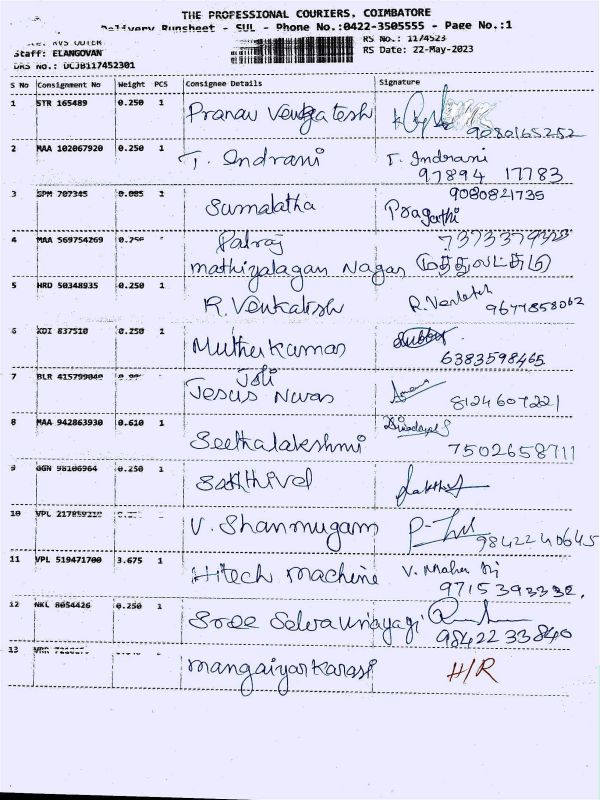 THE PROFESSIONAL COURIERS, COIMBATORE
Delivery Runsheet - SUL - Phone No.:0422-3505555 - Page No.:1
RVS OUTER RS No.: 1174523
Staff: ELANGOVAN RS Date: 22-May-2023
DRS No.: DCJB117452301
S No Consignment No Weight PCS Consignee Details Signature
1 STR 165489 0.250 1 Pranav Vengatesh 9080165252
2 MAA 102067920 0.250 1 T. Indrani T. Indrani
97894 17783
3 SPM 707345 0.085 1 Sumalatha 9080821735
Pragathi
4 MAA 569754269 0.250 Palraj
mathiyalagan Nagar
5 HRD 50348935 0.250 1 R. Venkatesh R. Venkatesh 9677858062
6 KDI 837510 0.250 1 Muthukumar
6383598465
7 BLR 415799040 Joli
Jesus Nivas 8124607221
8 MAA 942863930 0.610 1 Seethalakshmi
7502658711
9 GGN 98106964 0.250 1 Sakthivel
10 VPL V. Shanmugam
9842240645
11 VPL 519471700 3.675 1 Hitech machine V.
9715393332.
12 NKL 8054426 0.250 1 Sree Selva Vinayagi
9842233840
13 mangaiyarkarasi H/R